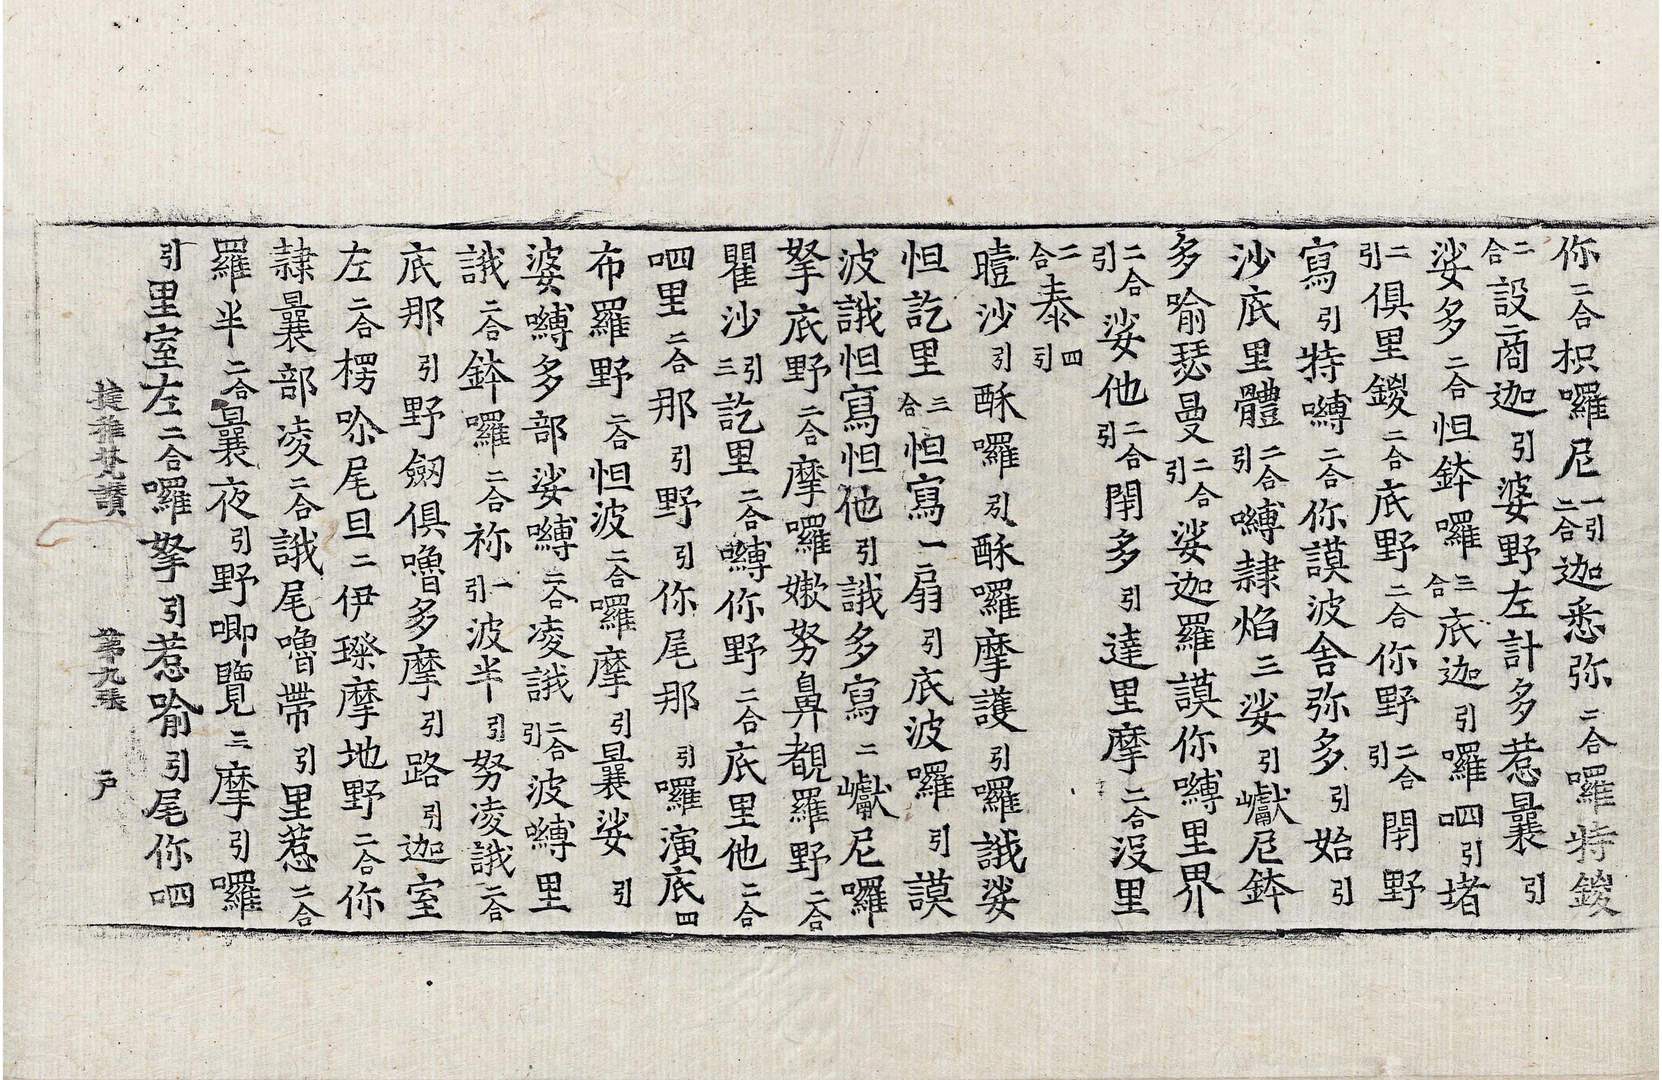 你二合枳囉尼一引二合迦悉弥二合羅特鍐
二合設商迦引婆野左計多惹曩引
娑多二合怛鉢囉三合底迦引囉四呬引堵
二引俱里鍐二合底野二合你野二合引閉野
寫引特嚩二合你謨波舍弥多引始引
沙底里體二合引嚩隷焰三娑引巘尼鉢
多喻瑟曼二合引娑迦羅謨你嚩里界
二合引娑他二合引閉多引達里摩二合沒里
二合泰四引
曀沙引酥囉引酥囉摩護引囉誐娑
怛訖里三合怛寫一二扇引底波囉引謨
波誐怛寫怛他引誐多寫二巘尼囉
拏底野二合摩囉嫩努鼻覩羅野二合
瞿沙引三訖里二合嚩你野二合底里他二合
呬里二合那引野引你尾那引囉演底四
布羅野二合怛波二合囉摩引曩娑引
婆嚩多部娑嚩二合凌誐二合引波嚩里
誐二合鉢囉二合祢一引波半引努凌誐二合
底那引野劔俱嚕多摩引路引迦室
左二合楞吩尾旦二伊璨摩地野二合你
隷曩部凌二合誐尾嚕帶引里惹二合
羅半二合曩夜引野唧覽三摩引囉
引里室左二合囉拏引惹喻引尾你呬
揵稚梵讚 第九張 户